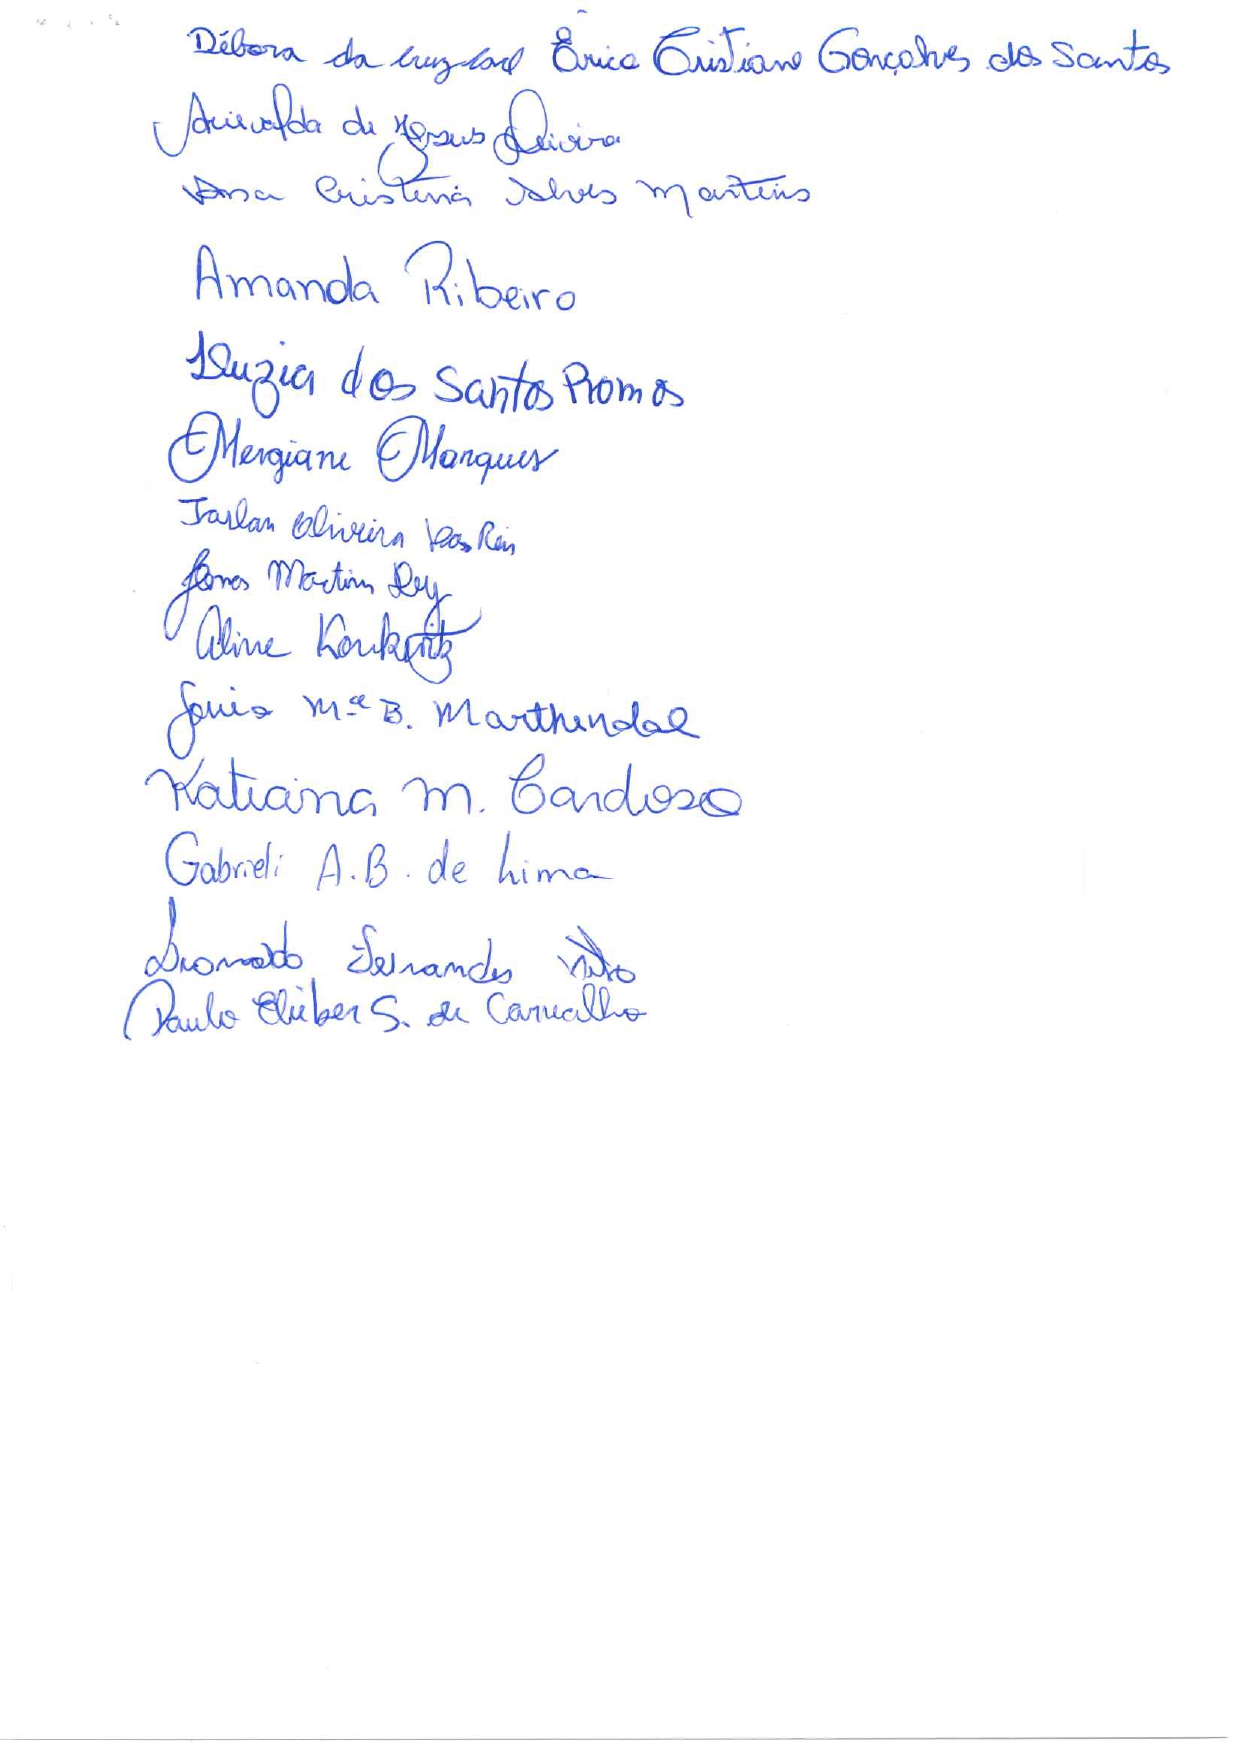 Débora da Cruz Érica Cristiane Gonçalves dos Santos
de Jesus Oliveira
Ana Cristina Alves Martins
Amanda Ribeiro
Luzia dos Santos Promos
Mergiane Marques
Jarlan Oliveira dos Reis
Martins
Aline
Sonia Mª B. Marthendal
Katiana M. Cardoso
Gabrieli A.B. de Lima
Leonardo Fernandes
Paulo Cleber S. de Carvalho